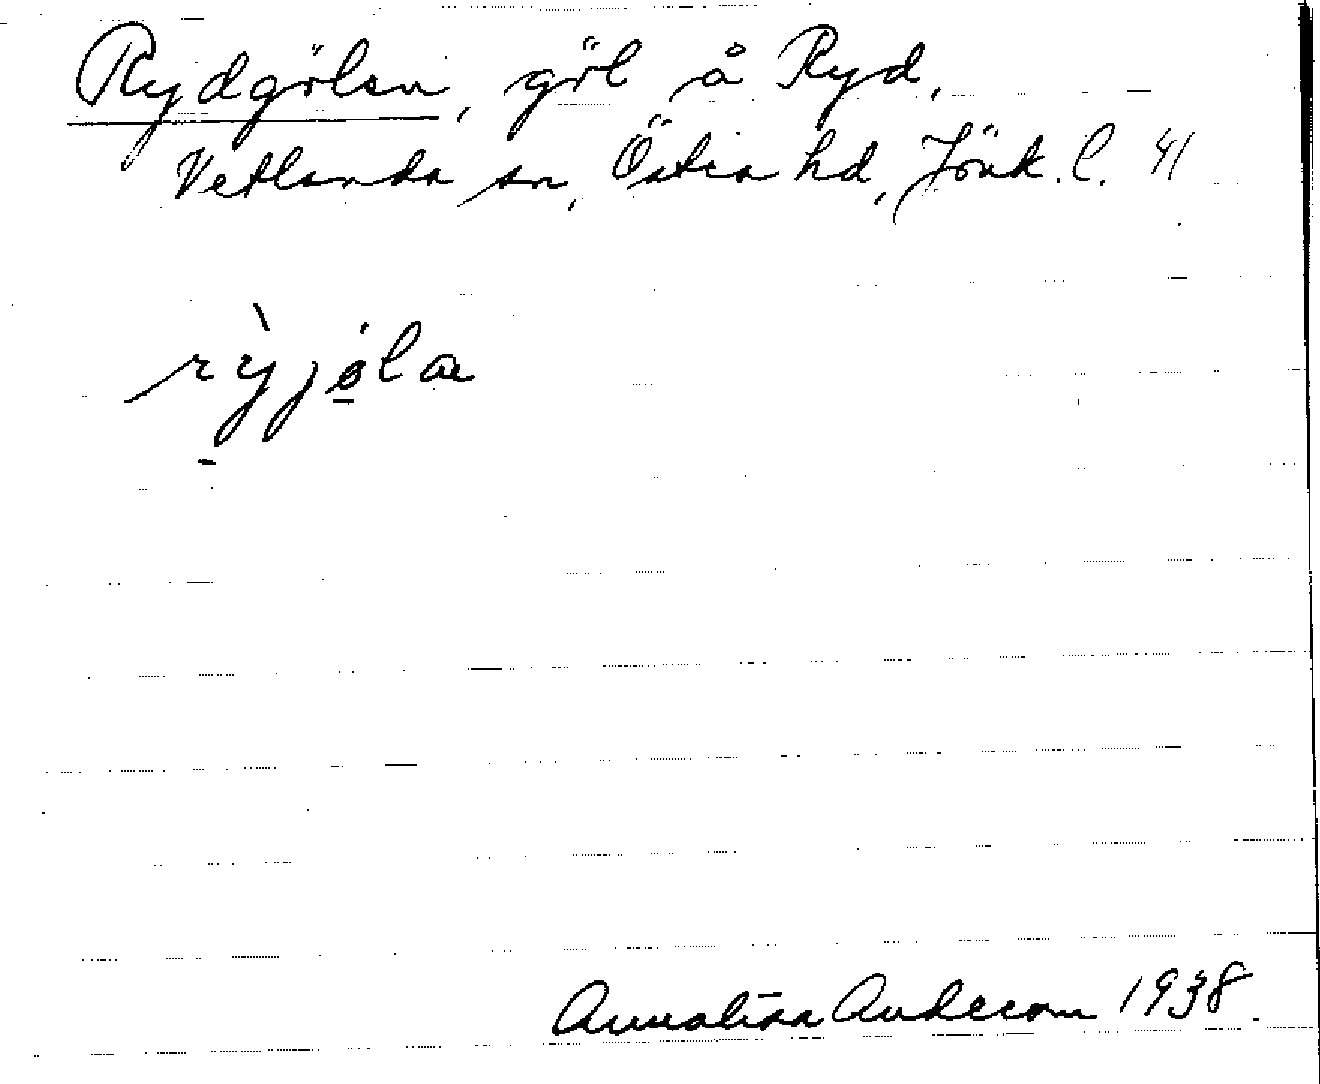 Rydgölen, göl å Ryd,
Vetlanda sn, Östra hd, Jönk. l. 41
rỳjöla
Annalisa Anderson 1938.